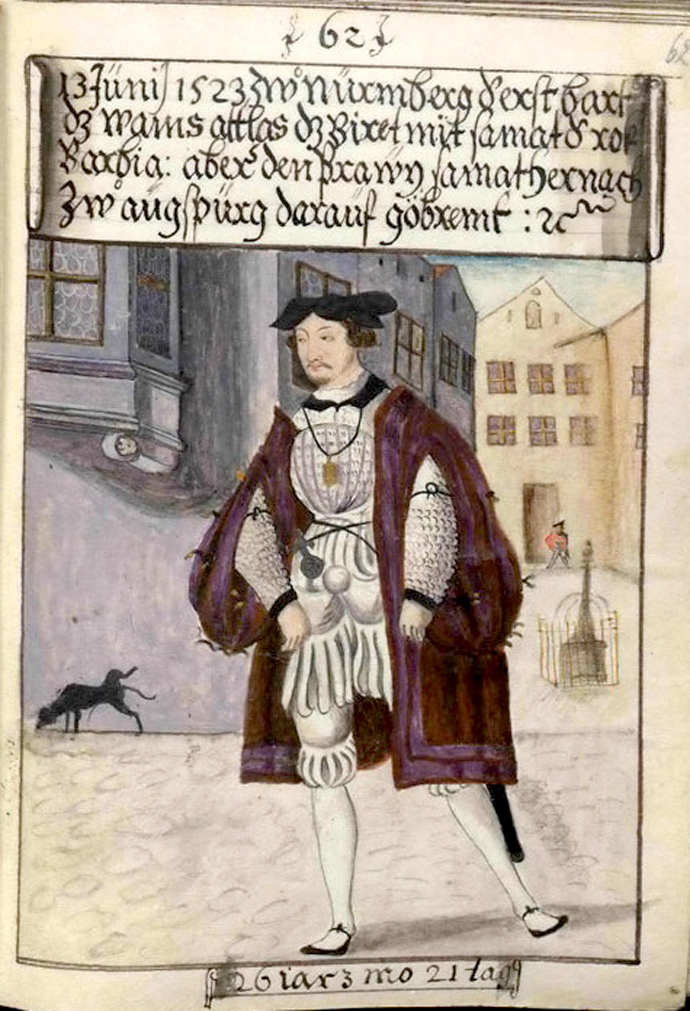 62
62
13 Junij 1523 zwº Nürmberg d erst bart
dz wams attlas dz Biret mit samat d rok
Barbia: aber den prawn samat hernach
Zwº augspürg darauf göbremt : ꝛc
26 iar 3 mo 21 tag